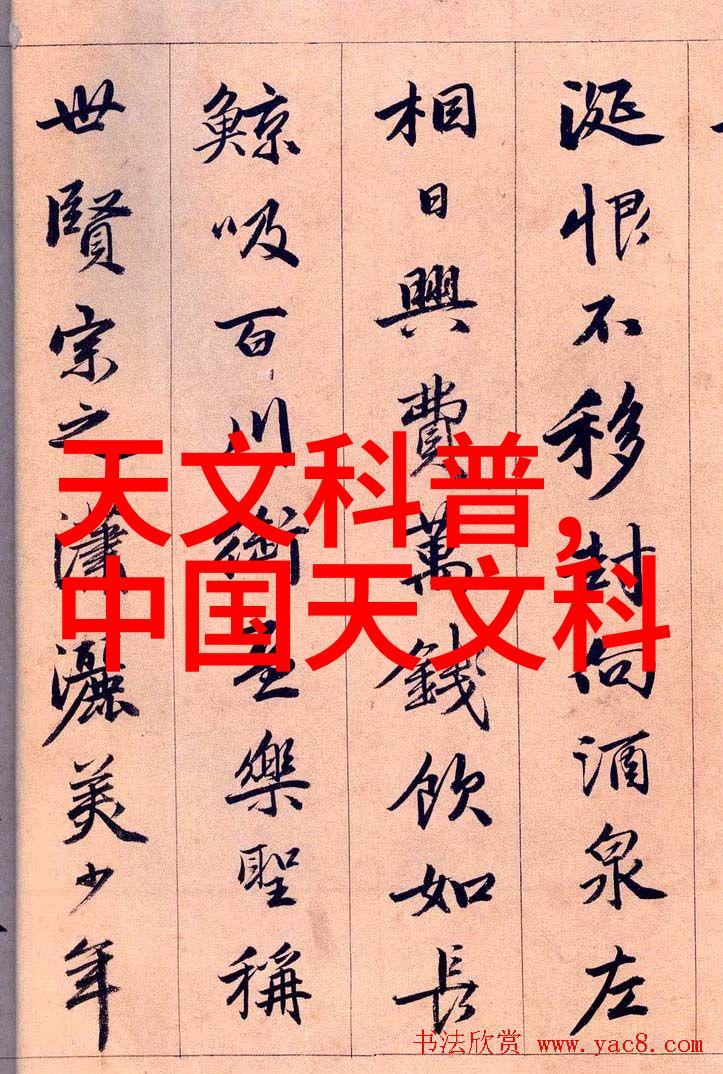 涎恨不移封向酒泉左
相日興費萬錢飲如長
鯨吸百川銜盃樂聖稱
世賢宗之瀟灑美少年
天文科普,
中国天文科
书法欣赏 www.yac8.com